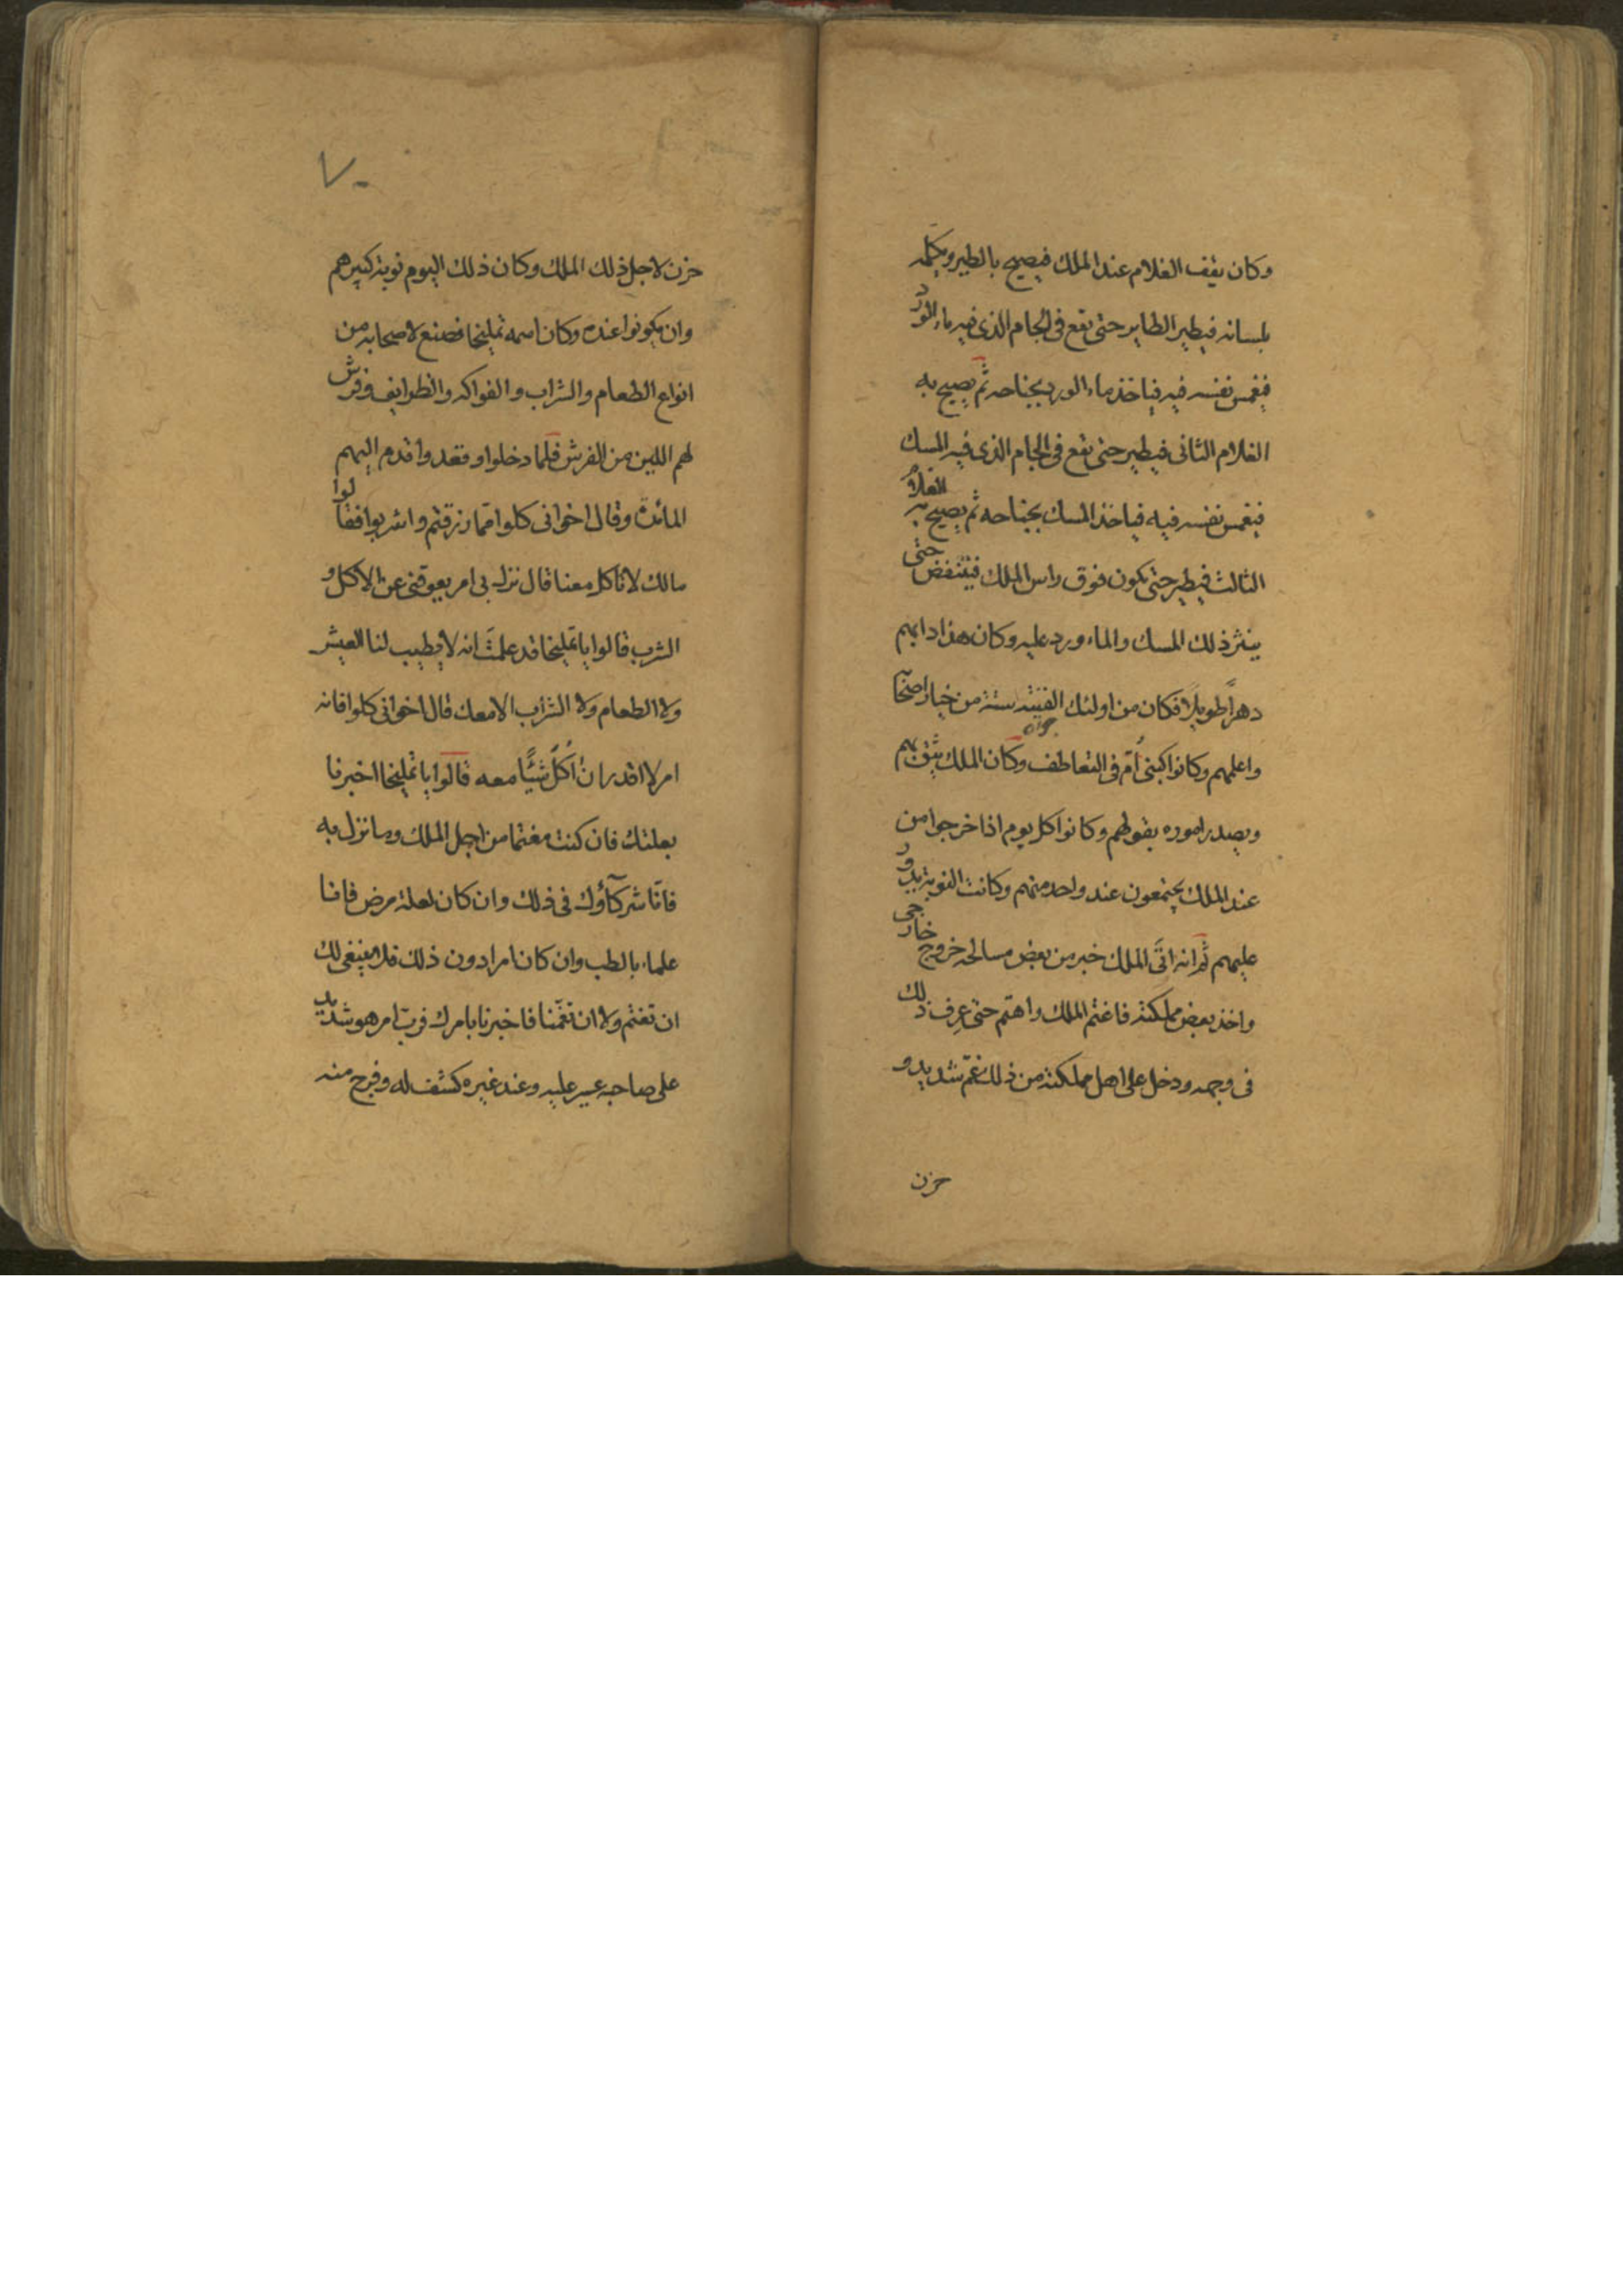 وكان يقف الغلام عند الملك فيصيح بالطير ويكلمه
بلسانه فيطير الطاير حتى تقع فى الجام الذى فيه ماء الورد
فيغمس نفسه فيه فياخذ ماء الورد بجناحه ثم يصيح به
الغلام الثانى فيطير حتى تقع فى الجام الذى فيه المسك
فيغمس نفسه فيه فياخذ المسك بجناحه ثم يصيح به الغلام
الثالث فيطير حتى يكون فوق راس الملك فينتفض حتى
ينثر ذلك المسك والماء ورد عليه وكان هذا دابهم
دهراً طويلاً فكان من اولئك الفتية ستة من خيار اصحابه
واعلمهم وكانوا كبنى اُم فى التعاطف وكان الملك يثق بهم
ويصدر اموره بقولهم وكانوا كل يوم اذا خرجوا من
عند الملك يجتمعون عند واحد منهم وكانت النوبة يدور
عليهم ثم انه اتى الملك خبر من بعض مسالحه خروج خارجى
واخذ بعض مملكته فاغتم الملك واهتم حتى عرف ذلك
فى وجهه ودخل على اهل مملكته من ذلك غم شديد و
حزن
٧٠
حزن لاجل ذلك الملك وكان ذلك اليوم نوبة كبيرهم
وان يكونوا عنده وكان اسمه تمليخا فصنع لاصحابه من
انواع الطعام والشراب والفواكه والظرايف وفرش
لهم اللين من الفرش فلما دخلوا وقعدوا قدم اليهم
المائدة وقال اخوانى كلوا مما رزقتم واشربوا فقالوا
مالك لا تاكل معنا قال نزل بى امر يعوقنى عن الاكل و
الشرب قالوا يا تمليخا قد علمت انه لا يطيب لنا العيش
ولا الطعام ولا الشراب الا معك قال اخوانى كلوا فانه
امر لا اقدر ان اكل شيًا معه قالوا يا تمليخا اخبرنا
بعلتك فان كنت مغتما من اجل الملك وما نزل به
فانّا شركآؤك فى ذلك وان كان لعلة مرض فانا
علماء بالطب وان كان امرا دون ذلك فلا ينبغى لك
ان تغتم ولا ان تغمّنا فاخبرنا بامرك فربّ امر هو شديد
على صاحبه عسر عليه وعند غيره كشف له وفرج منه